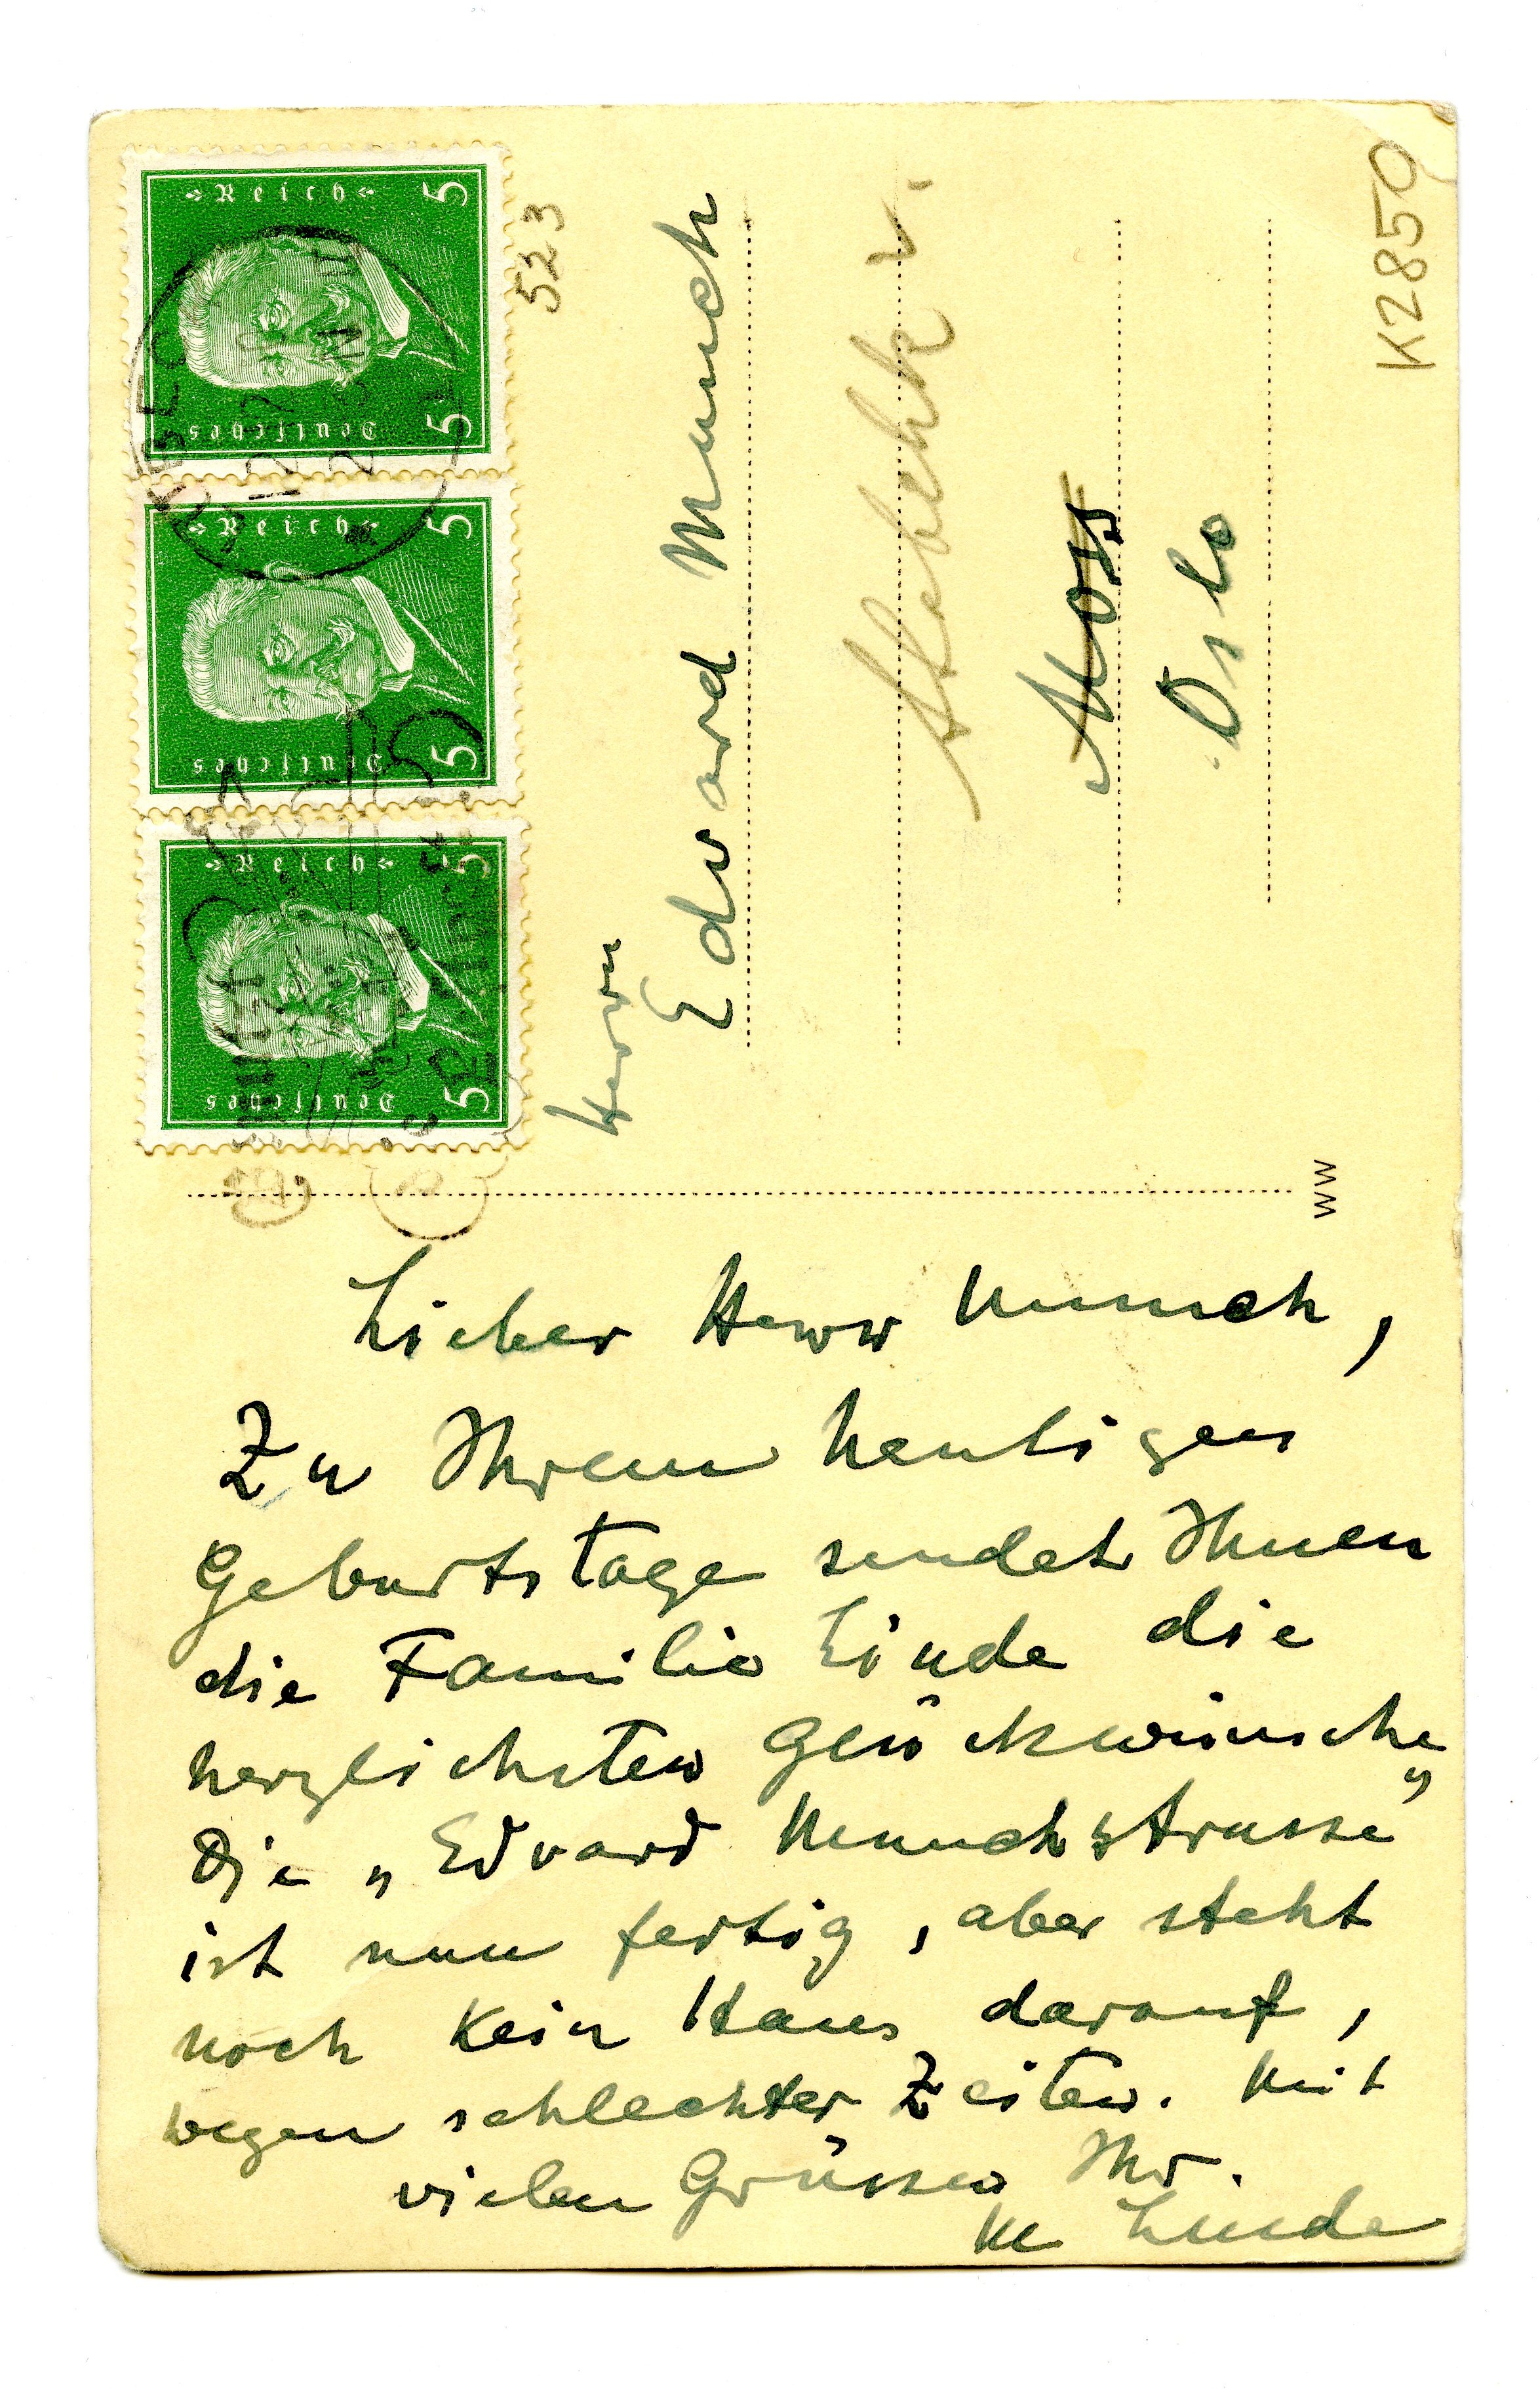 K2850
523
Reich 5
Deutsches 5
Reich 5
Deutsches 5
Reich 5
Deutsches 5
Herrn
Edvard Munch
Moss
Oslo
WW
Lieber Herr Munch,
Zu Ihrem heutigen
Geburtstage sendet Ihnen
die Familie Linde die
herzlichsten Glückwünsche
Die „Edvard Munchstrasse"
ist nun fertig, aber steht
noch kein Haus darauf,
wegen schlechter Zeiten. Mit
vielen Grüssen Ihr.
M Linde